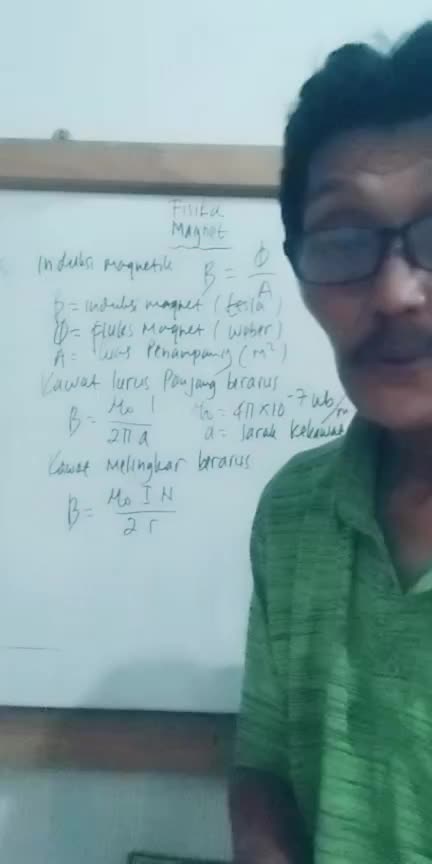 Fisika
Magnet
Induksi magnetik B = Φ / A
B = induksi magnet (tesla)
Φ = fluks Magnet (weber)
A = luas Penampang (m²)
Kawat lurus Panjang berarus
B = μ₀ I / 2πa μ₀ = 4π×10⁻⁷ wb/
a = Jarak kekawat
kawat Melingkar berarus
B = μ₀ I N / 2 r